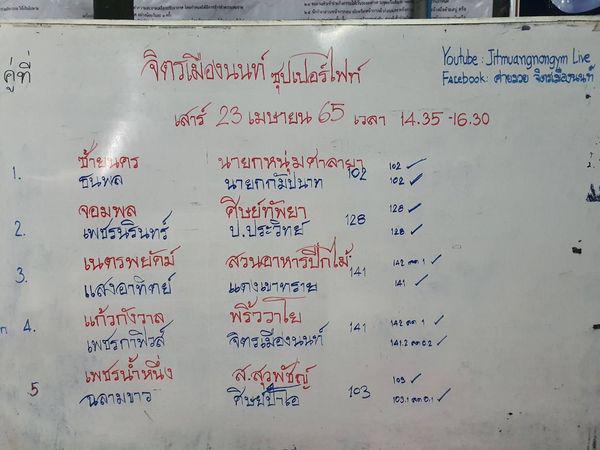 คู่ที่
จิตรเมืองนนท์ ซุปเปอร์ไฟท์
Youtube : Jitmuangnongym Live
Facebook: ค่ายมวย จิตรเมืองนนท์
เสาร์ 23 เมษายน 65 เวลา 14.35 -16.30
1. ซ้ายนคร นายกหนุ่มศาลายา 102 102 ✓
ธนพล นายกกัมปนาท 102 ✓
2. จอมพล ศิษย์ทัพยา 128 128 ✓
เพชรนรินทร์ ป.ประวิทย์ 128 ✓
3. เนตรพยัคม์ สวนอาหารปีกไม้ 141 142 ลด 1 ✓
แสงอาทิตย์ แตงเขาทราย 141 ✓
4. แก้วกังวาล พริ้ววาโย 141 142 ลด 1 ✓
เพชรกาฬวส์ จิตรเมืองนนท์ 141.2 ลด 0.2 ✓
5 เพชรน้ำหนึ่ง ส.สุรพัชญ์ 103 103 ✓
ฉลามขาว ศิษย์ป๋าโอ 103.1 ลด 0.1 ✓